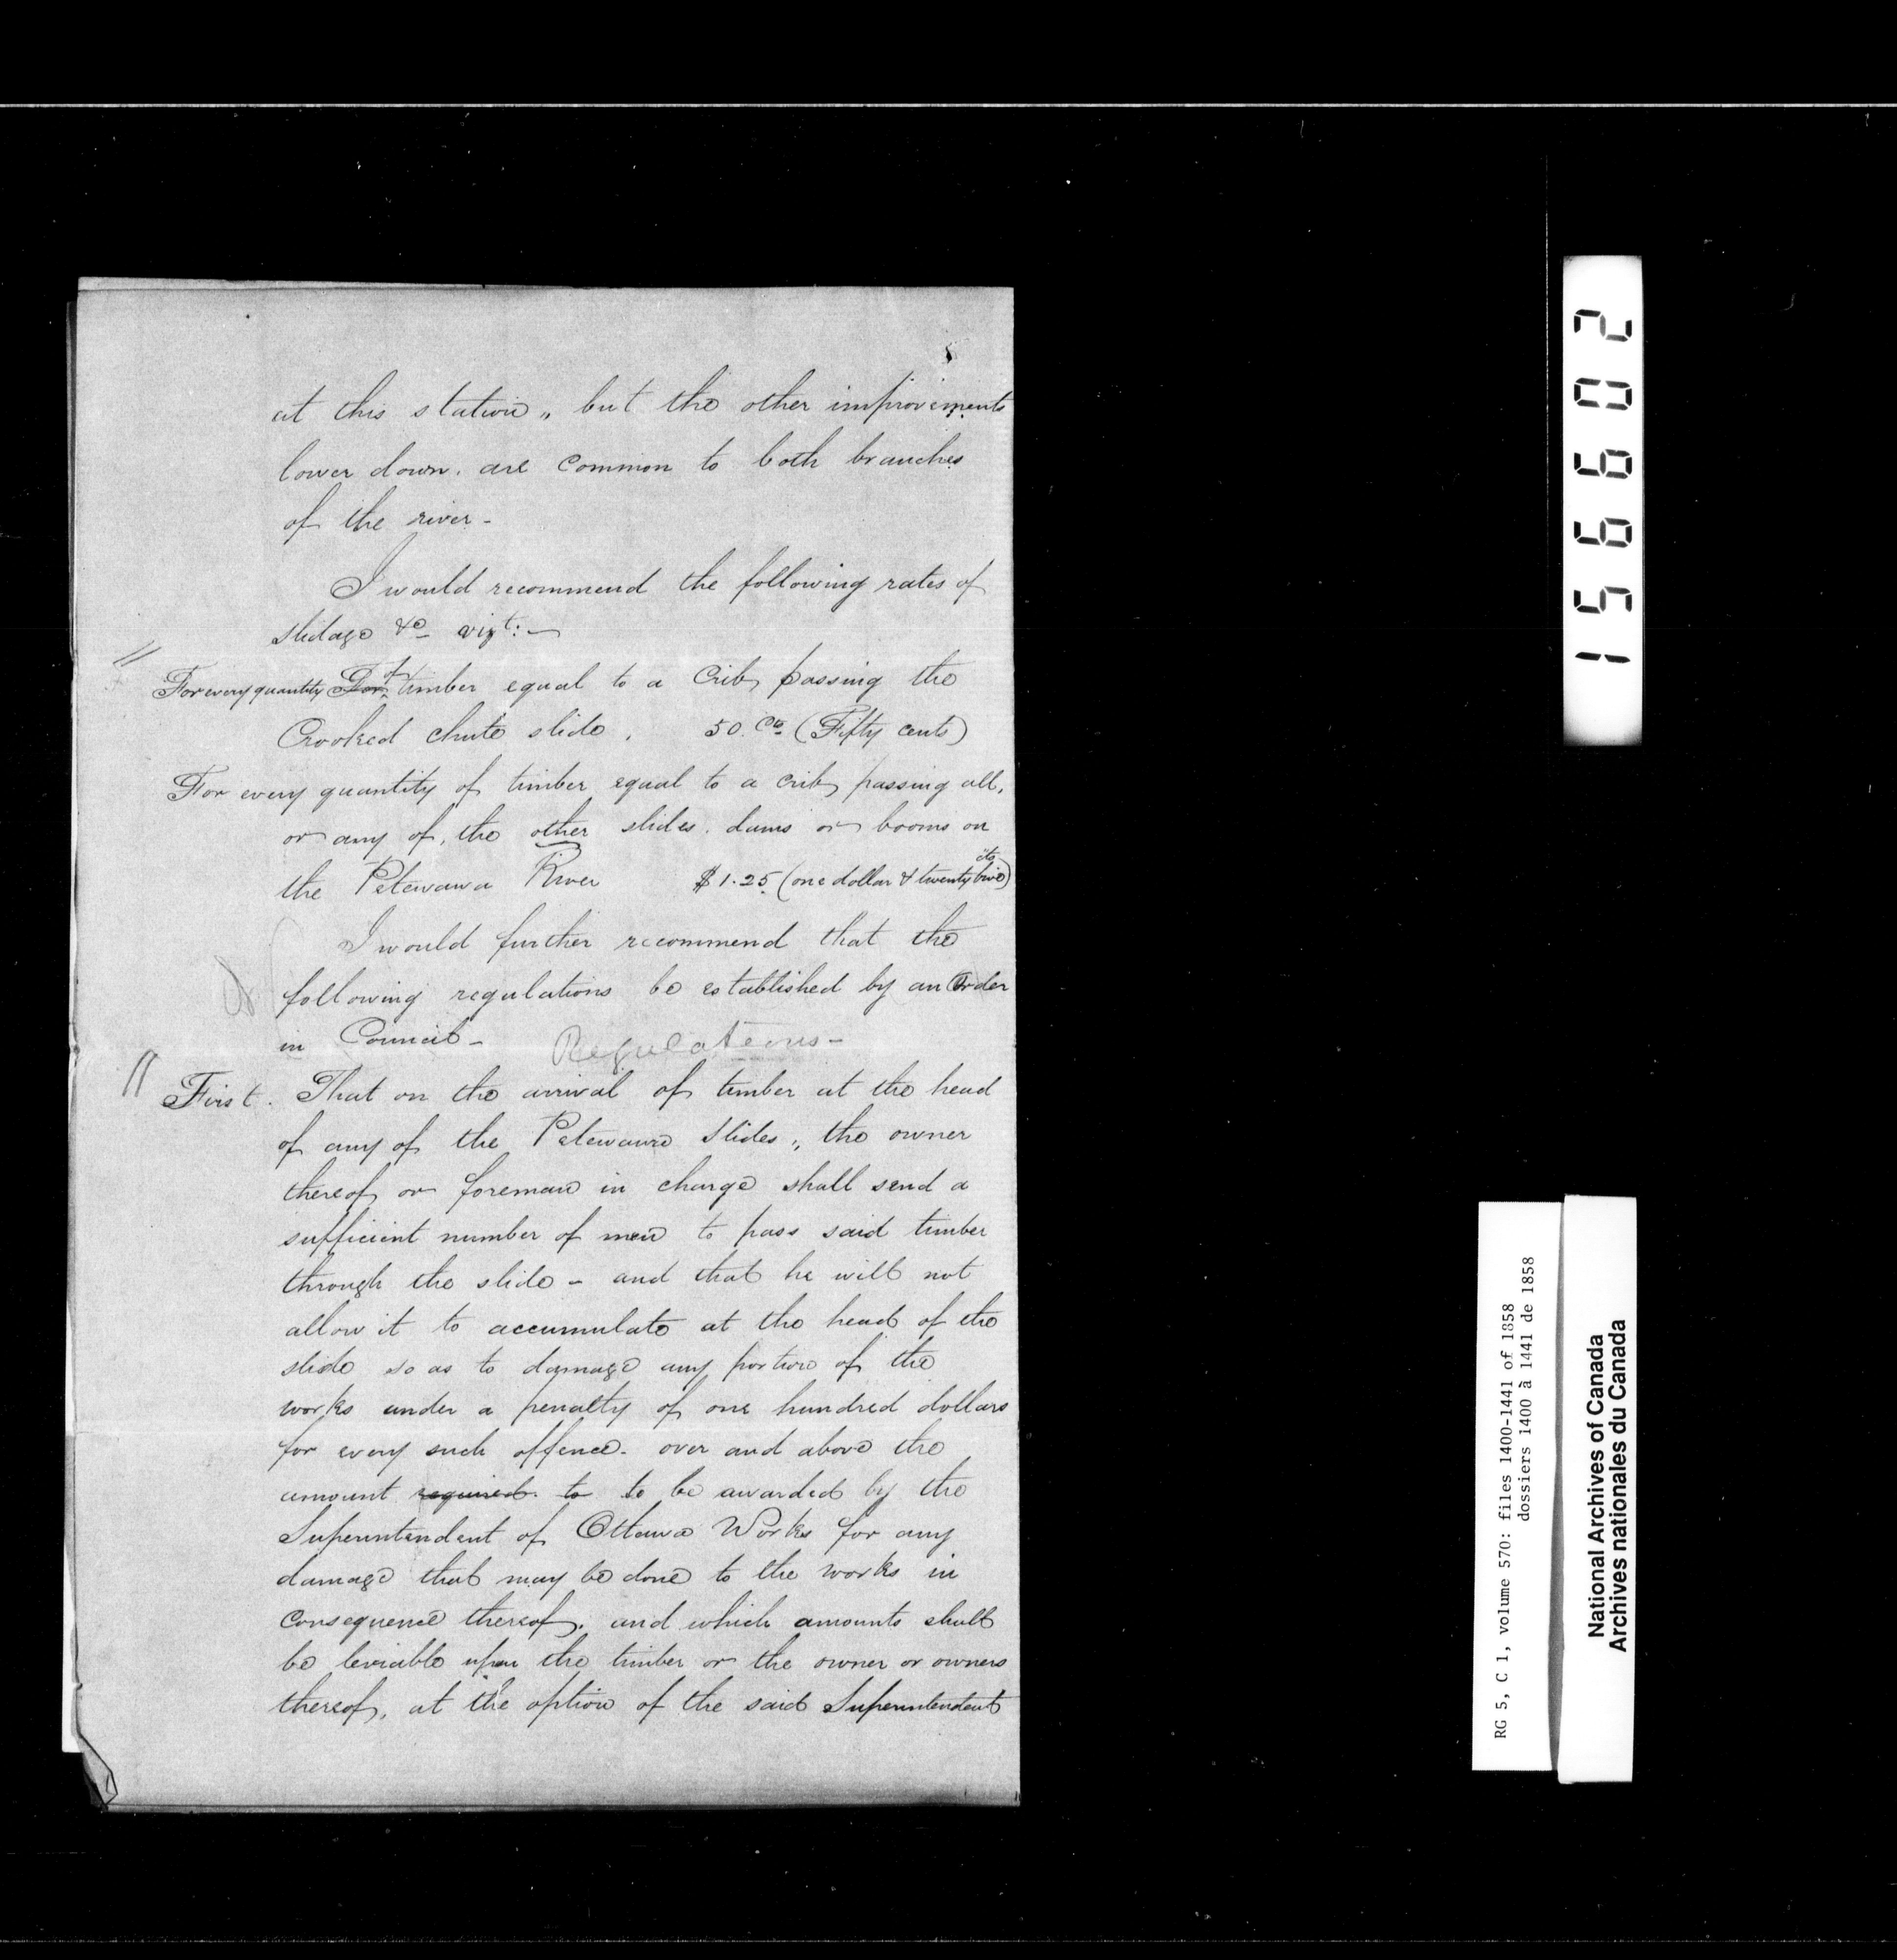 at this station,, but the other improvements
lower down. are common to both branches
of the river -
I would recommend the following rates of
slidage &c vizt: —
For every quantity For of timber equal to a Crib, passing the
Crooked chute slide . 50 Cts (Fifty cents)
For every quantity of timber equal to a crib, passing all,
or any of, the other slides. dams or booms on
the Petewawa River $1.25 (one dollar & twenty five cts)
I would further recommend that the
following regulations be established by an Order
in Council - Regulations -
First. That on the arrival of timber at the head
of any of the Petewawa slides,, the owner
thereof or foreman in charge shall send a
sufficient number of men to pass said timber
through the slide - and that he will not
allow it to accumulate at the head of the
slide so as to damage any portion of the
works under a penalty of one hundred dollars
for every such offence. over and above the
amount required to to be awarded by the
Superintendent of Ottawa Works for any
damage that may be done to the works in
consequence thereof. and which amounts shall
be leviable upon the timber or the owner or owners
thereof, at the option of the said Superintendent
156602
RG 5, C 1, volume 570: files 1400-1441 of 1858
dossiers 1400 à 1441 de 1858
National Archives of Canada
Archives nationales du Canada